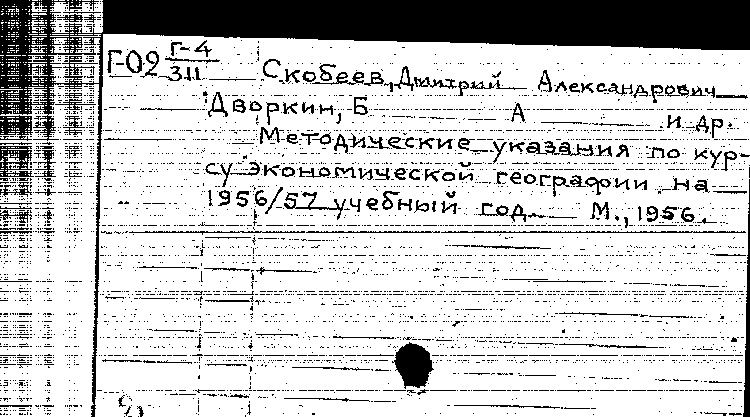 Г-02 Г-4/311 Скобеев, Дмитрий Александрович
Дворкин, Б А и др.
Методические указания по кур-
су экономической географии на
1956/57 учебный год. М., 1956.